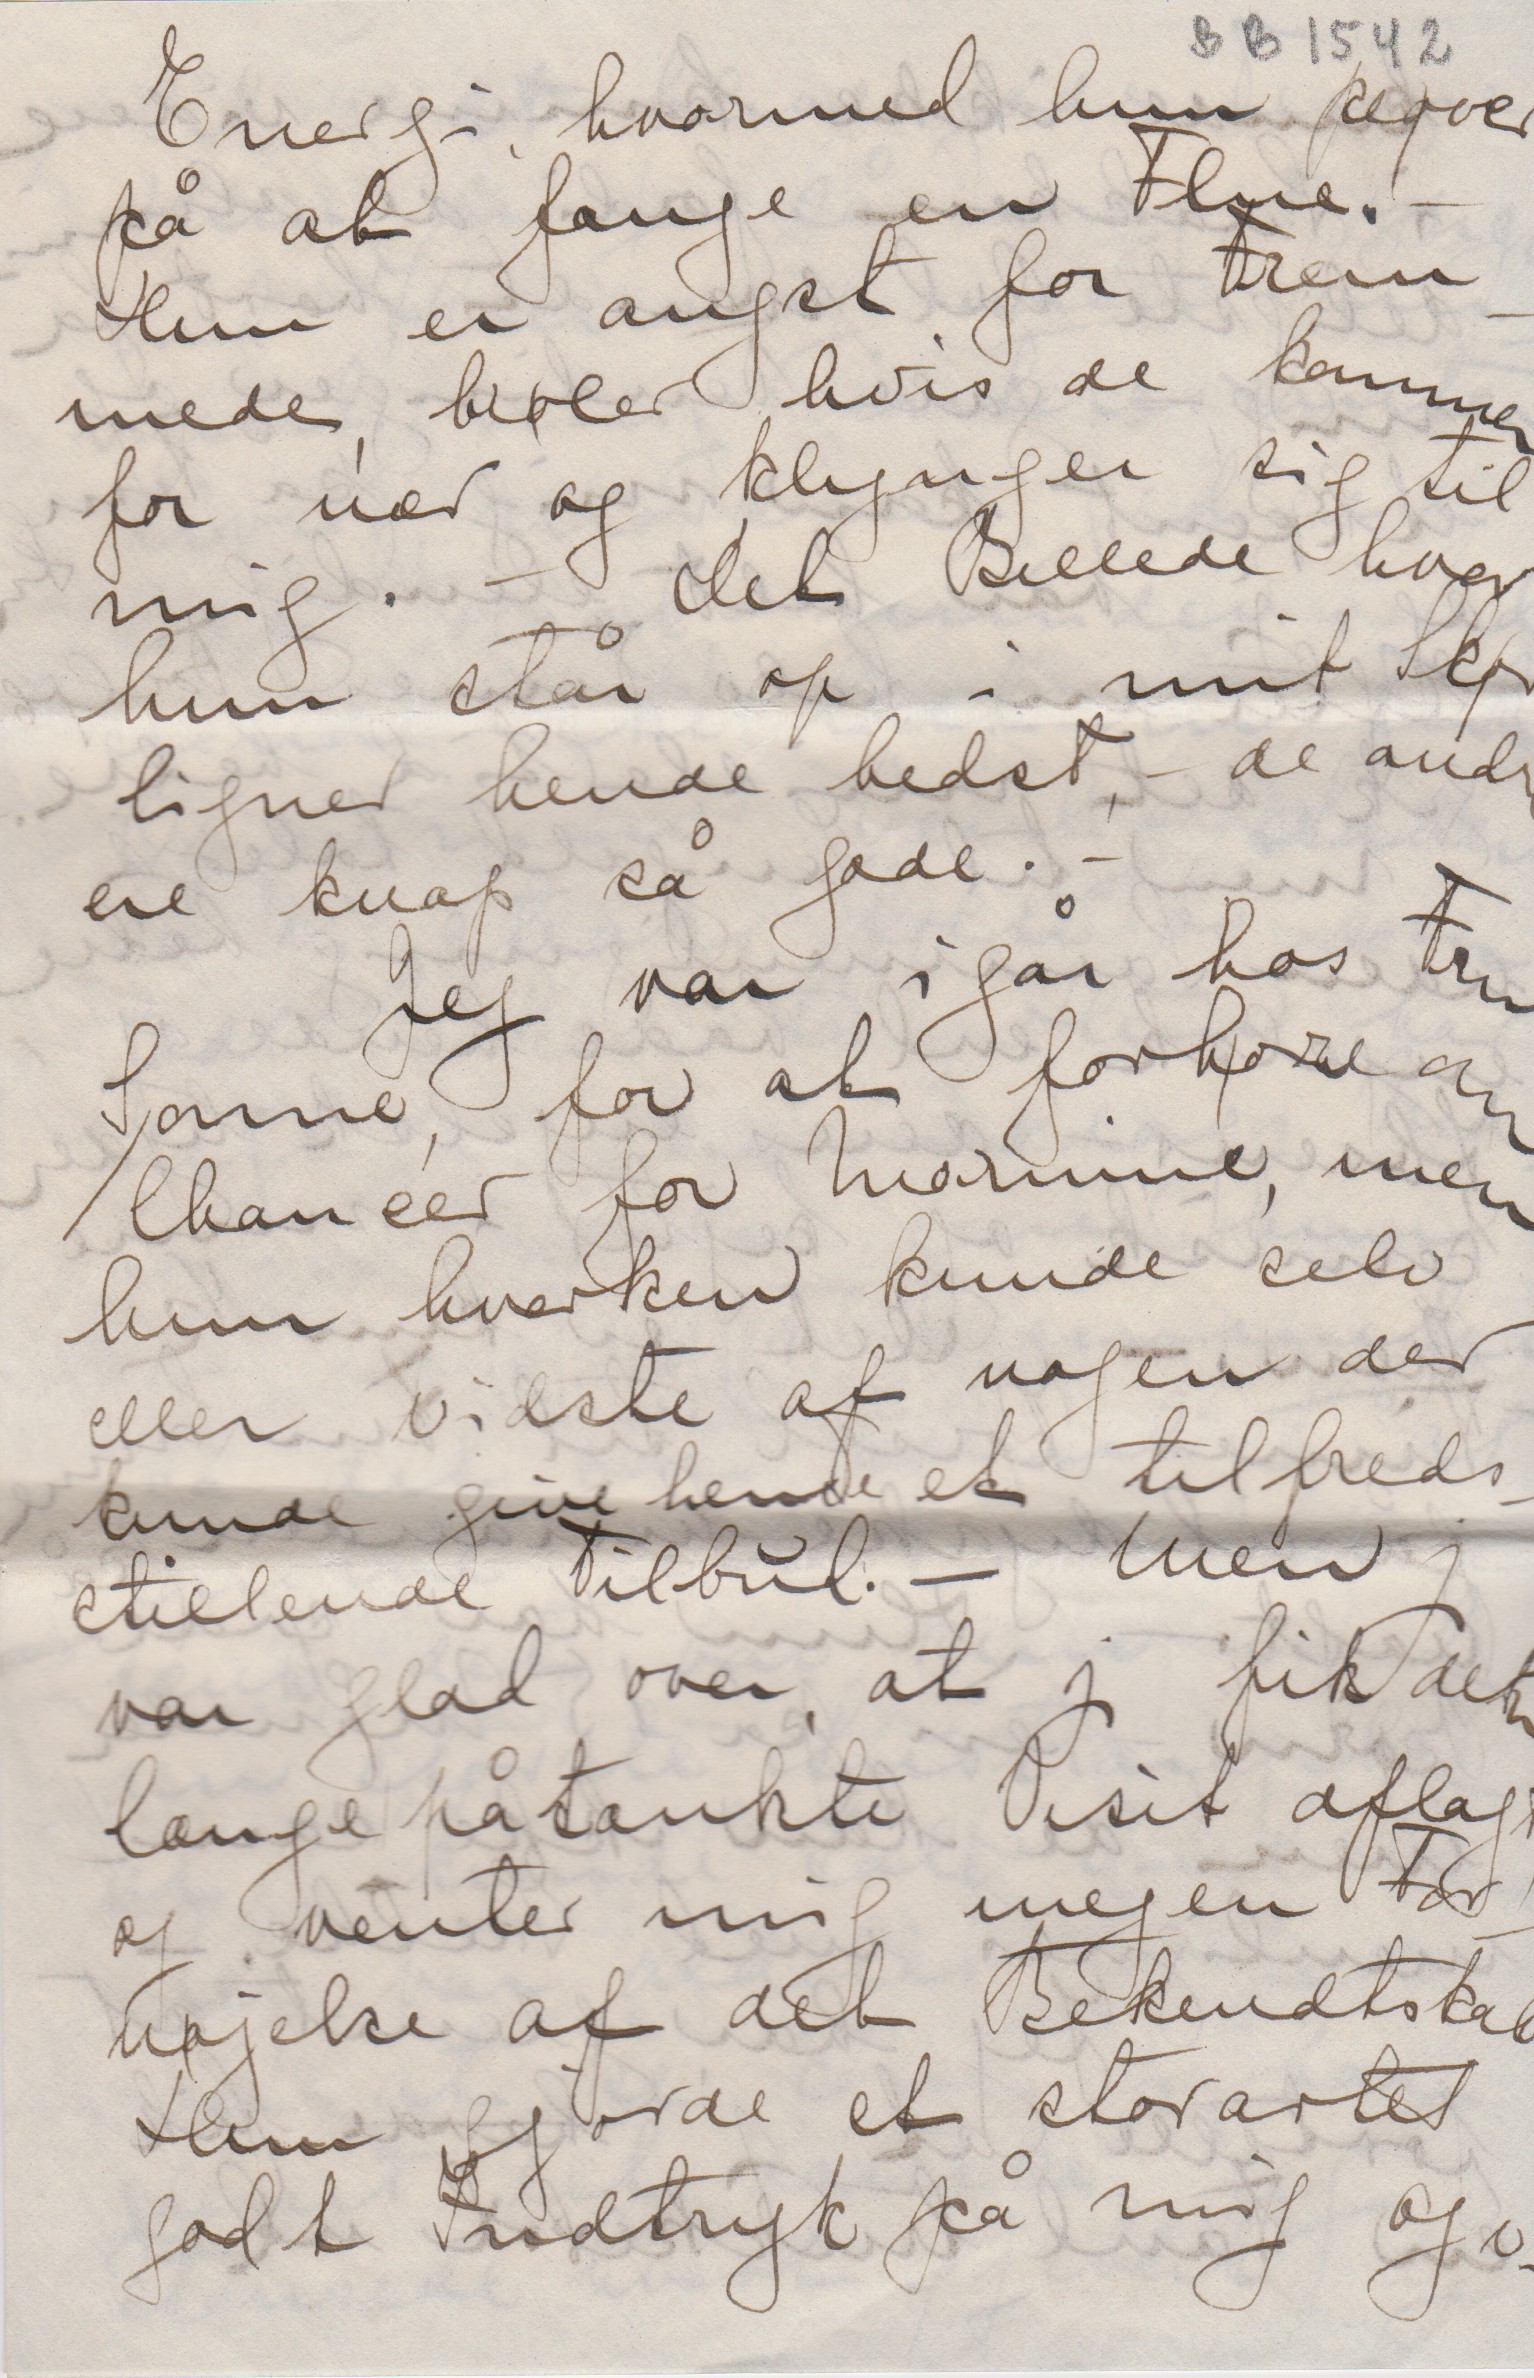 BB1542
Energi, hvormed hun prøver
på at fange en Flue. –
Hun er angst for Frem-
mede, brøler hvis de kommer
for nær og klynger sig til
mig. – Det Billede hvor
hun står op i mit Skø
ligner hende bedst, – de andr
ere knap så gode. –
Jeg var igår hos Fru
Sonne, for at forhøre om
Chancer for Mornine, men
hun hverken kunde selv
eller vidste af nogen der
kunde give hende et tilfreds-
stillende Tilbud. – Men j
var glad over, at j fik den
længe påtænkte Visit aflagt
og venter mig megen For-
nøjelse af det Bekendtskab
Hun gjorde et storartet
godt Indtryk på mig og v-